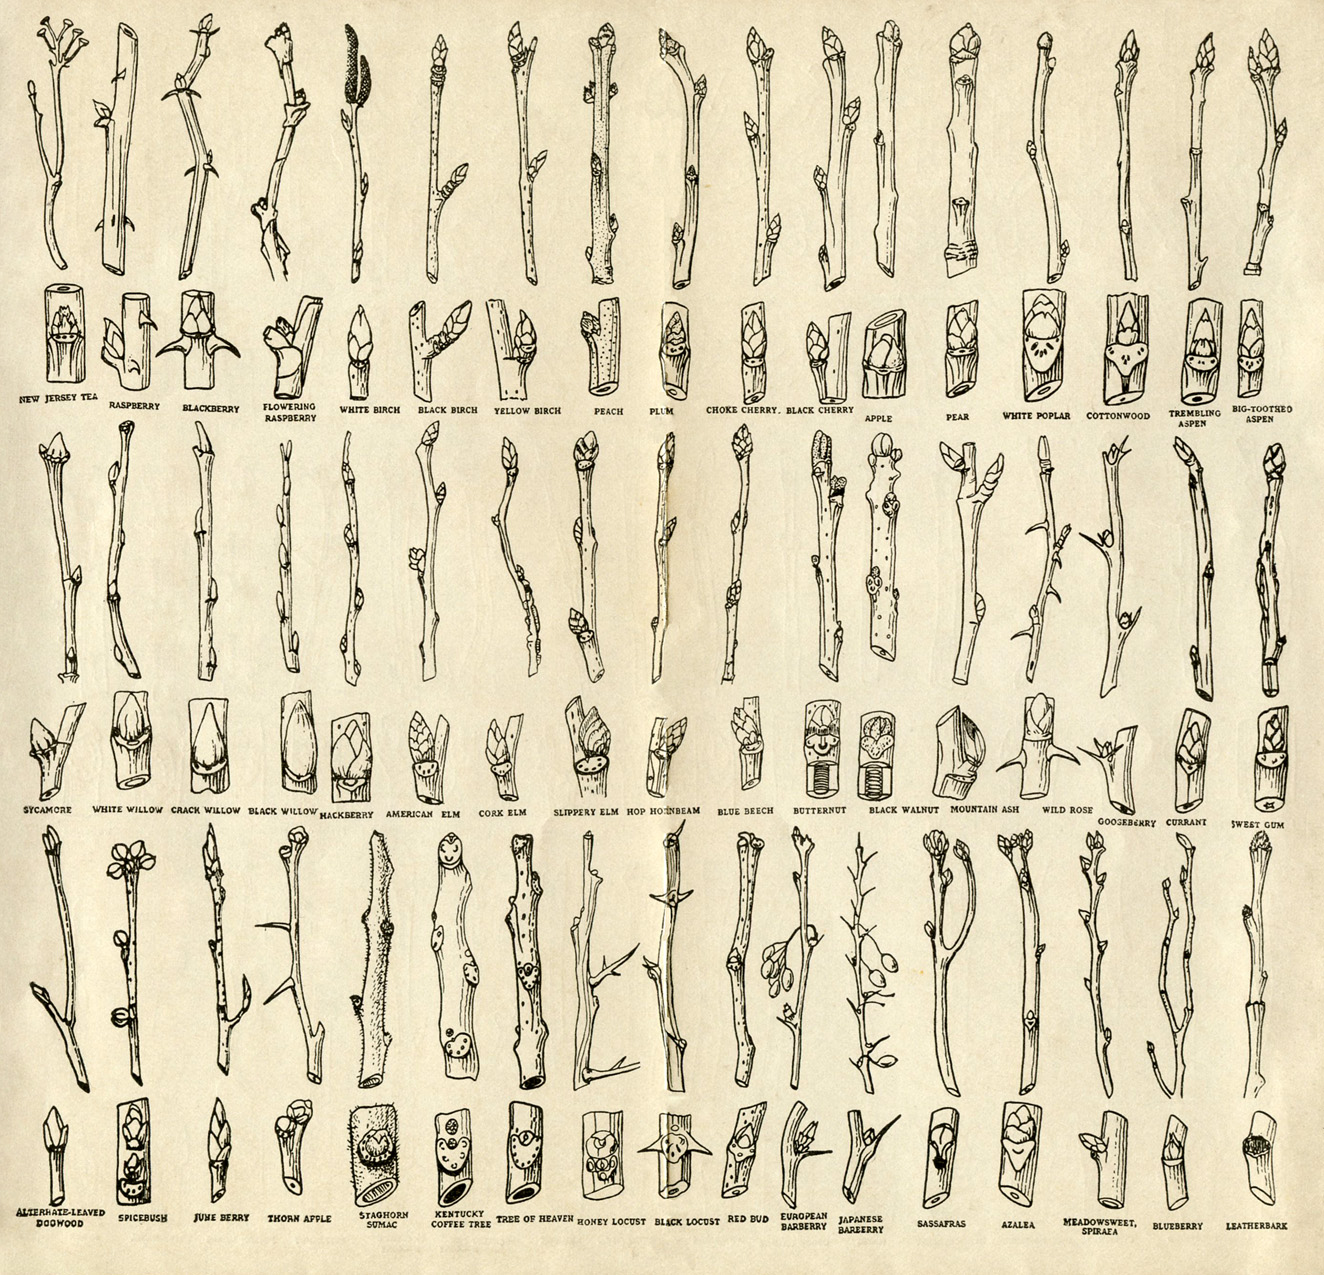 NEW JERSEY TEA
RASPBERRY
BLACKBERRY
FLOWERING
RASPBERRY
WHITE BIRCH
BLACK BIRCH
YELLOW BIRCH
PEACH
PLUM
CHOKE CHERRY,
BLACK CHERRY
APPLE
PEAR
WHITE POPLAR
COTTONWOOD
TREMBLING
ASPEN
BIG-TOOTHED
ASPEN
SYCAMORE
WHITE WILLOW
CRACK WILLOW
BLACK WILLOW
HACKBERRY
AMERICAN ELM
CORK ELM
SLIPPERY ELM
HOP HORNBEAM
BLUE BEECH
BUTTERNUT
BLACK WALNUT
MOUNTAIN ASH
WILD ROSE
GOOSEBERRY
CURRANT
SWEET GUM
ALTERNATE-LEAVED
DOGWOOD
SPICEBUSH
JUNE BERRY
THORN APPLE
STAGHORN
SUMAC
KENTUCKY
COFFEE TREE
TREE OF HEAVEN
HONEY LOCUST
BLACK LOCUST
RED BUD
EUROPEAN
BARBERRY
JAPANESE
BARBERRY
SASSAFRAS
AZALEA
MEADOWSWEET,
SPIRAEA
BLUEBERRY
LEATHERBARK